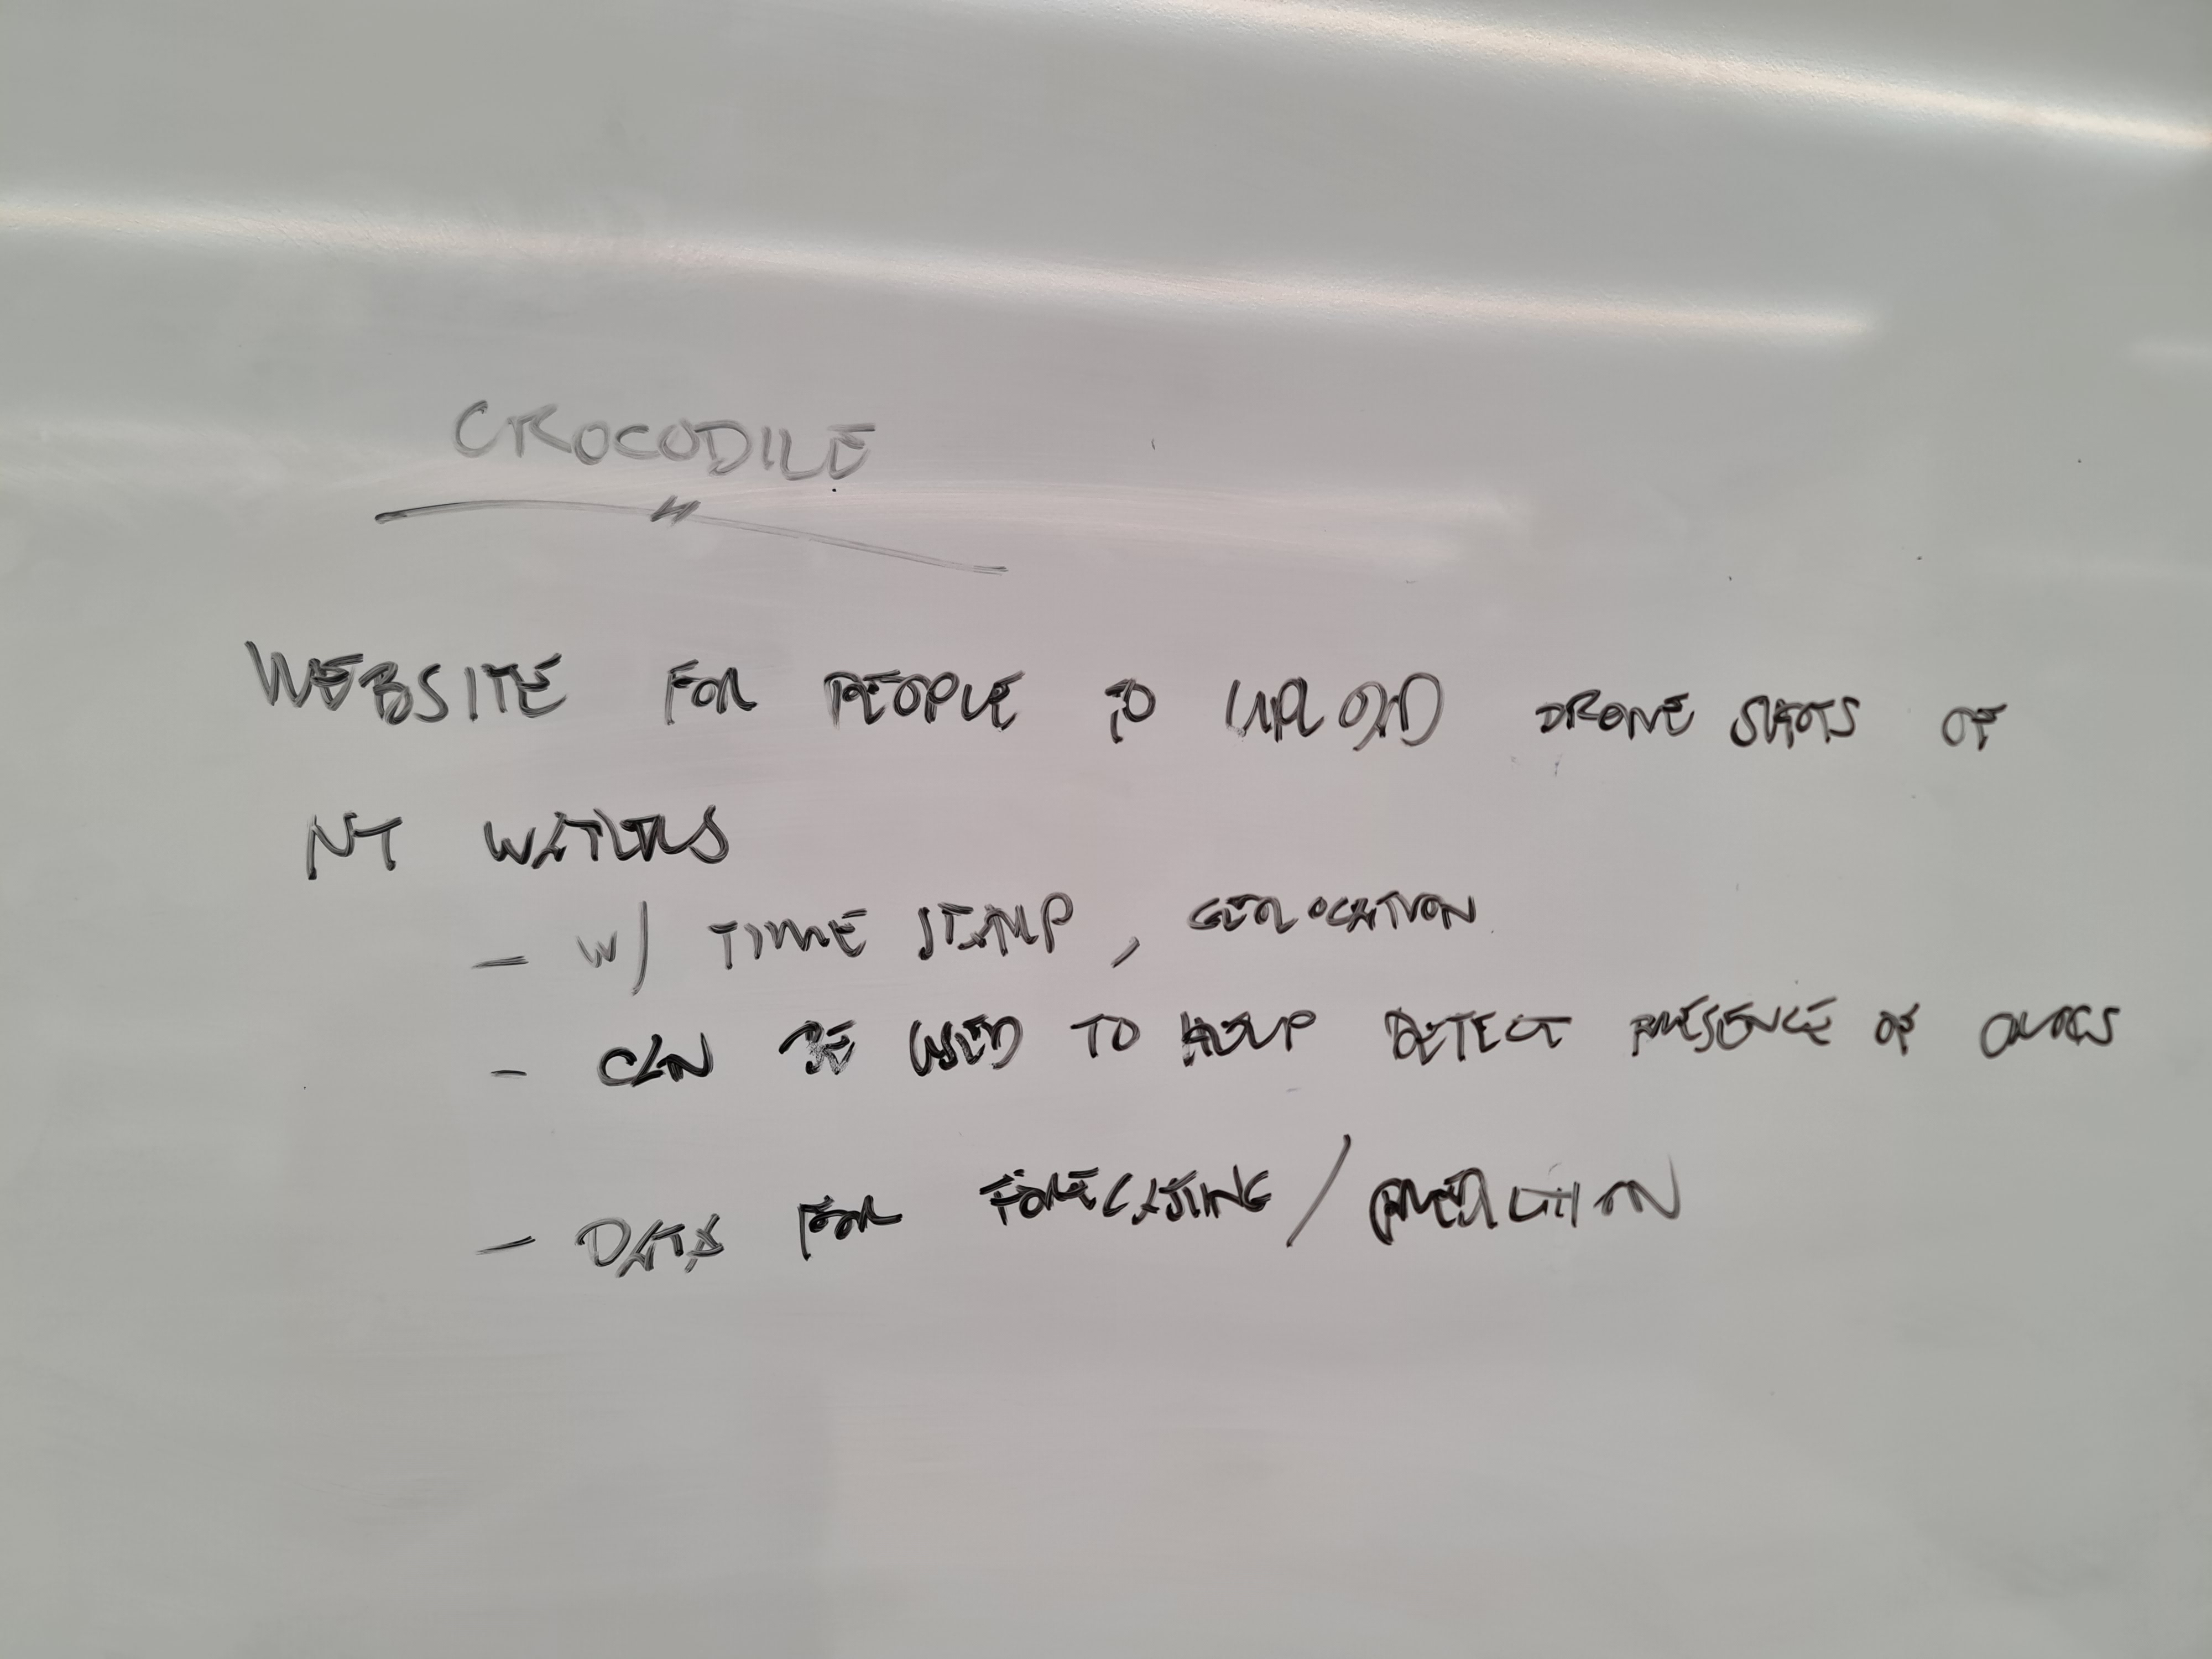 CROCODILE
WEBSITE FOR PEOPLE TO UPLOAD DRONE SHOTS OF
NT WATERS
- W/ TIME STAMP, GEOLOCATION
- CAN BE USED TO HELP DETECT PRESENCE OF CROCS
- DATA FOR FORECASTING / PREDICTION